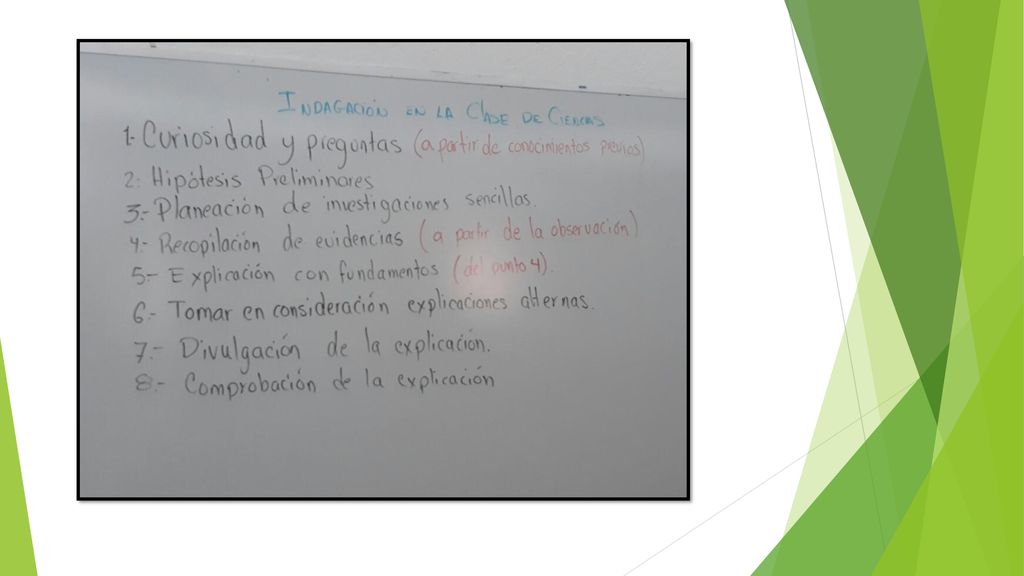 INDAGACIÓN EN LA CLASE DE CIENCIAS
1- Curiosidad y preguntas (a partir de conocimientos previos)
2: Hipótesis Preliminares
3.- Planeación de investigaciones sencillas.
4.- Recopilación de evidencias (a partir de la observación)
5.- Explicación con fundamentos (del punto 4).
6.- Tomar en consideración explicaciones alternas.
7.- Divulgación de la explicación.
8.- Comprobación de la explicación